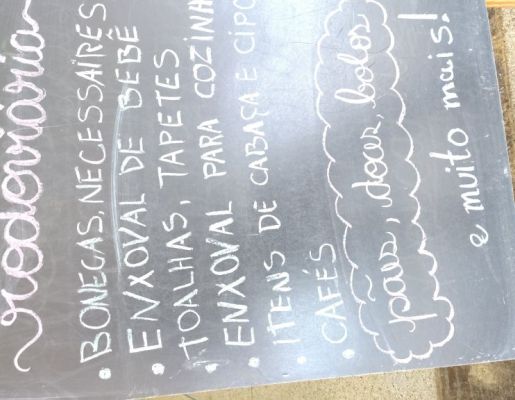 rodoviária
• BONECAS, NECESSAÏRES
• ENXOVAL DE BEBÊ
• TOALHAS, TAPETES
• ENXOVAL PARA COZINHA
• ITENS DE CABAÇA E CIPÓ
• CAFÉS
pães, doces, bolos
e muito mais!